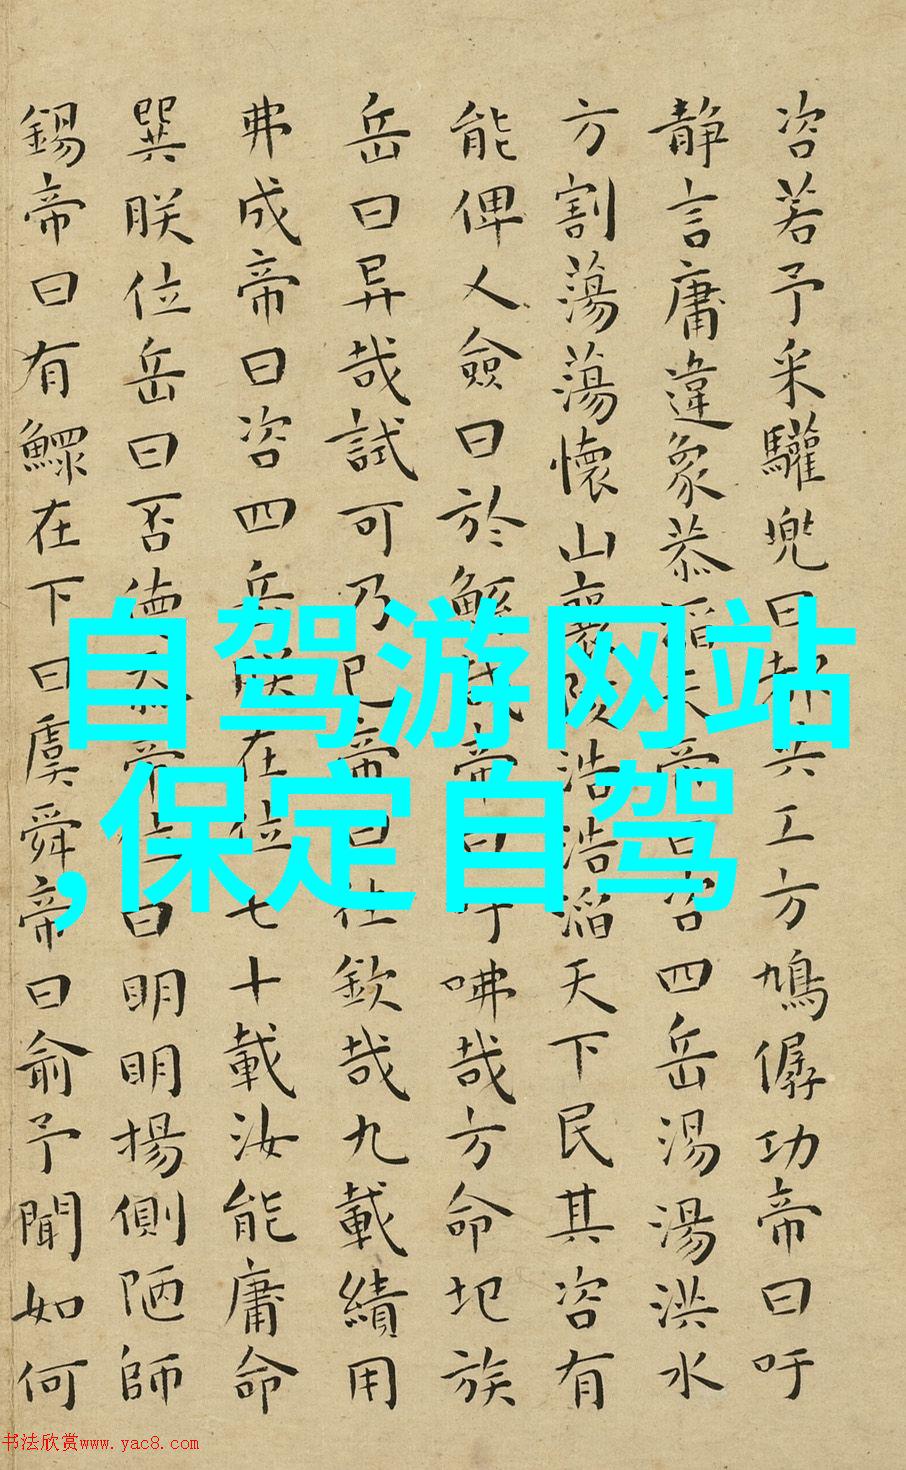 咨若予采驩兜曰都共工方鳩僝功帝曰吁
静言庸違象恭滔天帝曰咨四岳湯湯洪水
方割蕩蕩懷山襄陵浩浩滔天下民其咨有
能俾乂僉曰於鯀哉帝曰吁咈哉方命圮族
岳曰异哉試可乃已帝曰往欽哉九載績用
弗成帝曰咨四岳朕在位七十載汝能庸命
巽朕位岳曰否德忝帝位曰明明揚側陋師
錫帝曰有鰥在下曰虞舜帝曰俞予聞如何
自驾游网站
,保定自驾
书法欣赏www.yac8.com